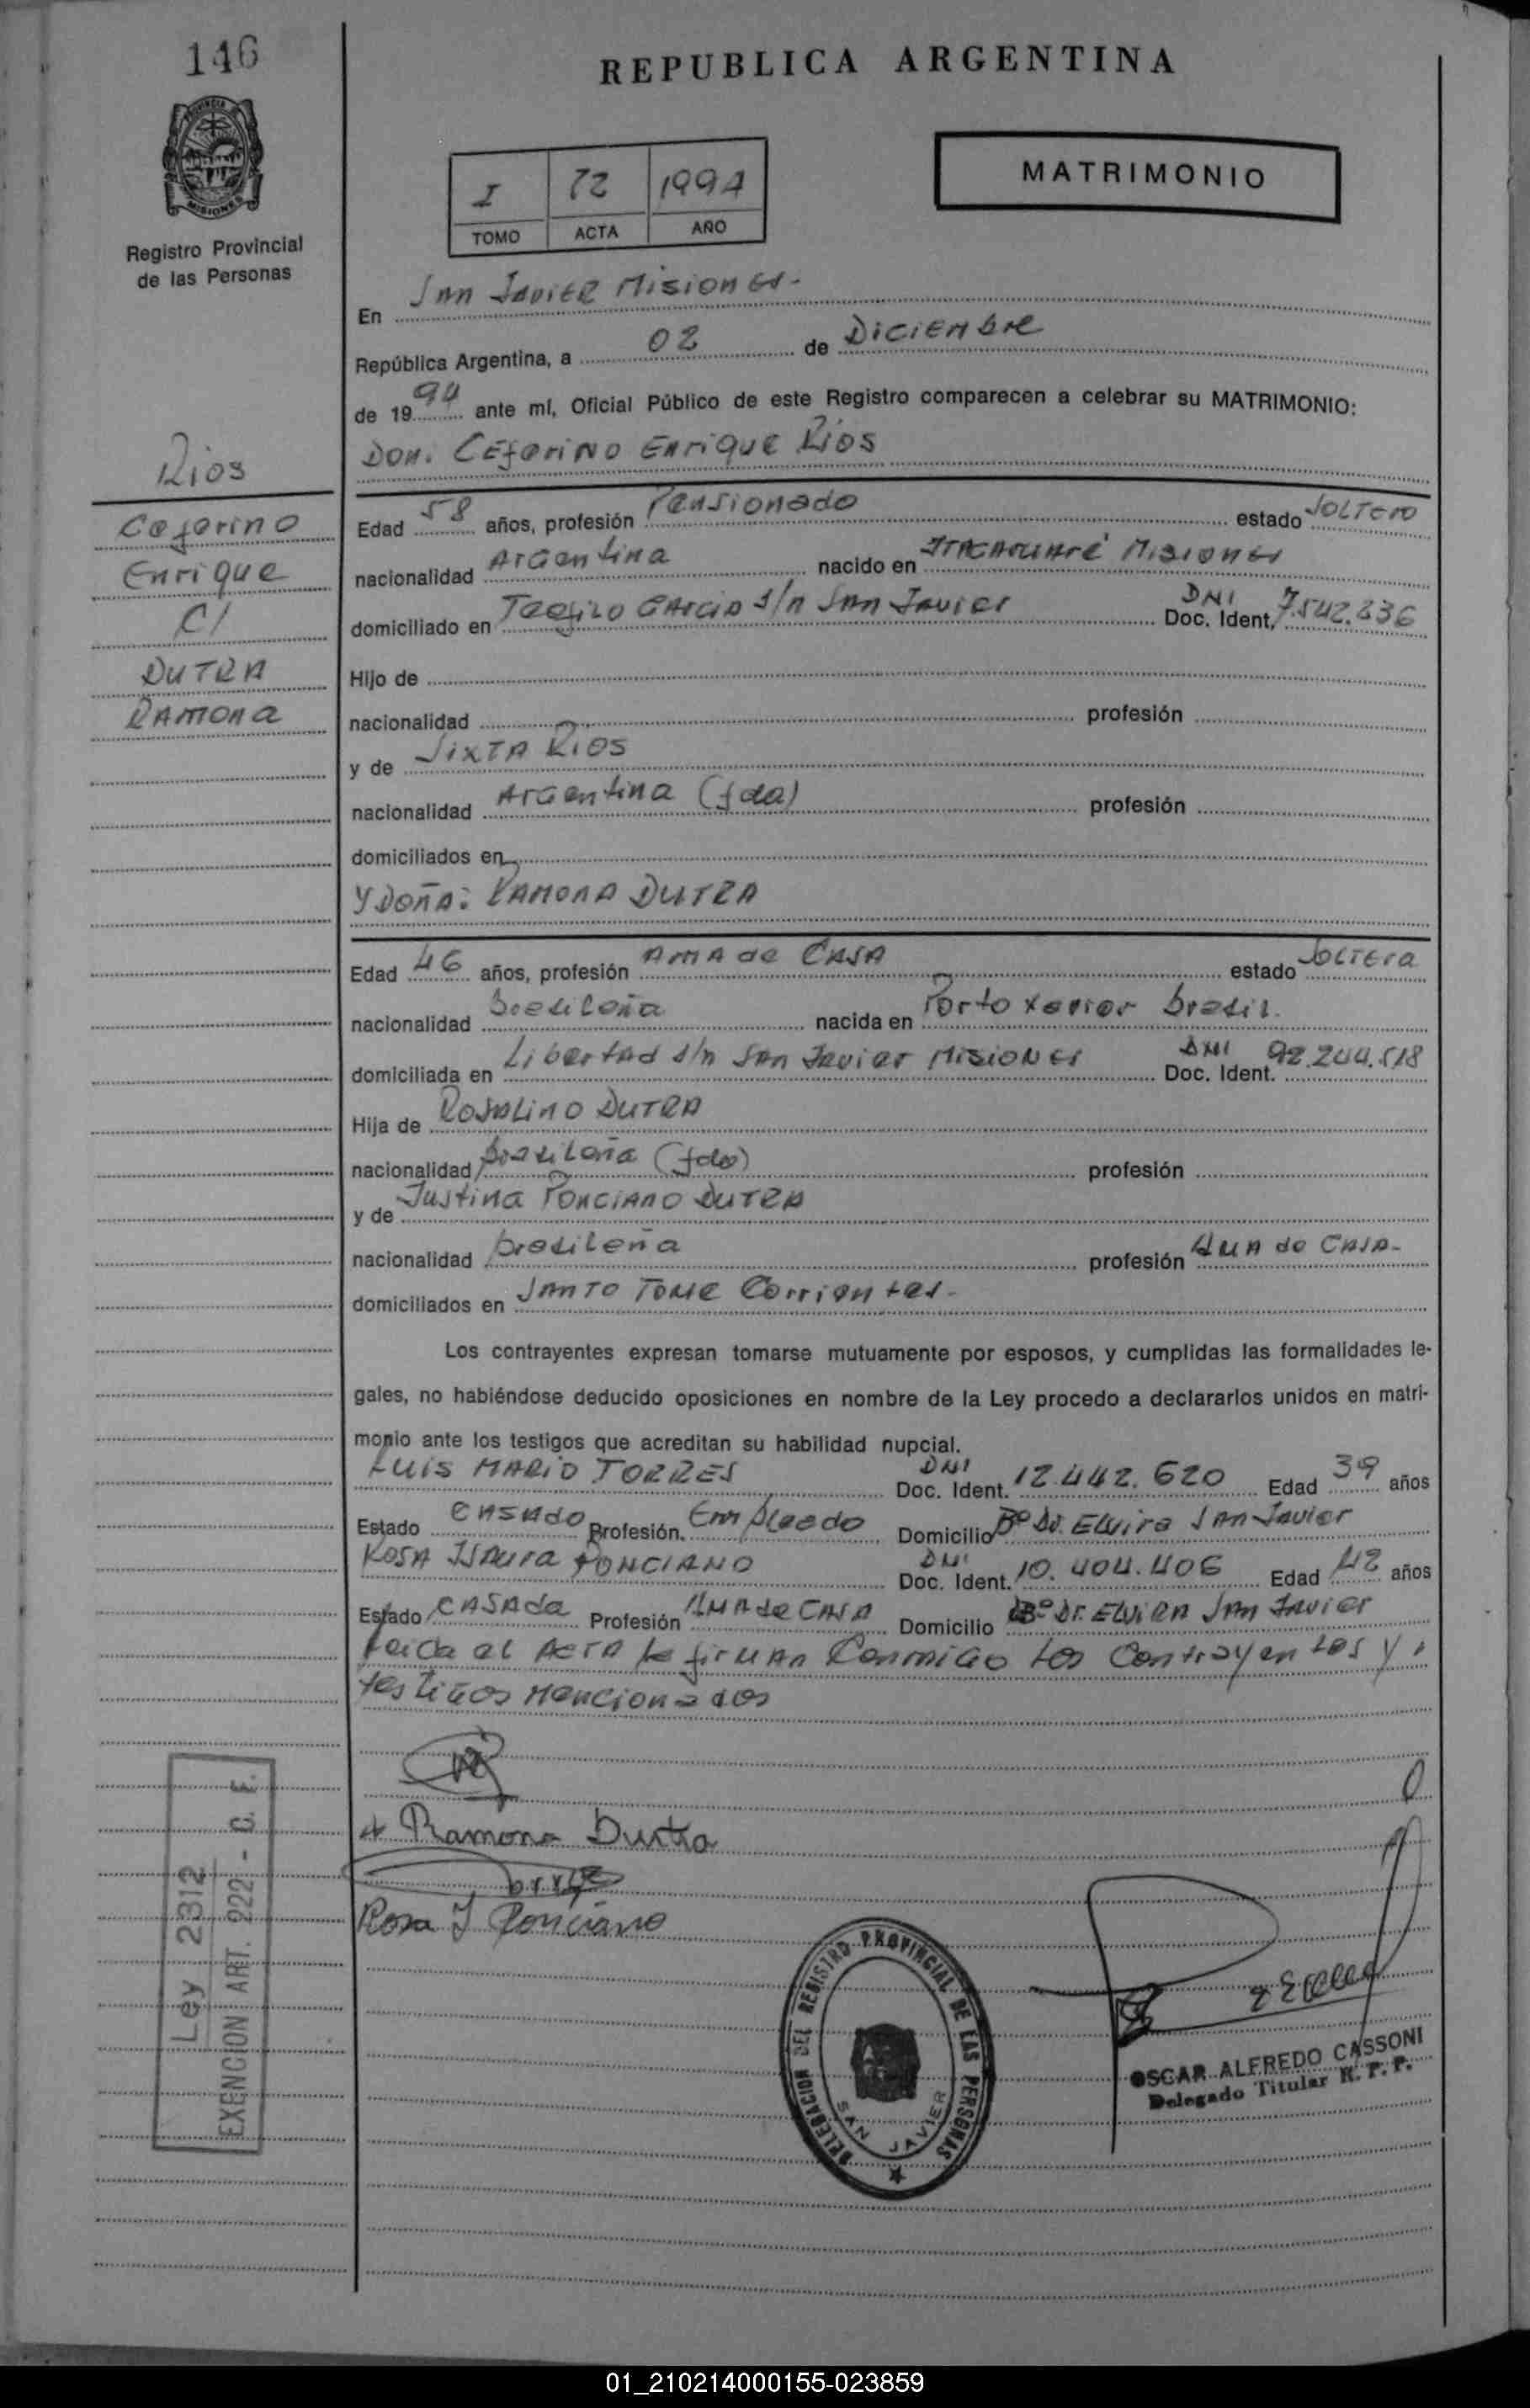 146
REPUBLICA ARGENTINA
PROVINCIA DE
MISIONES
Registro Provincial
de las Personas
I 72 1994
TOMO ACTA AÑO
MATRIMONIO
En San Javier Misiones.
República Argentina, a 02 de Diciembre
de 1994 ante mí, Oficial Público de este Registro comparecen a celebrar su MATRIMONIO:
Don. Ceferino Enrique Rios
Rios
Ceferino
Enrique
C/
DUTRA
RAMONA
Edad 58 años, profesión Pensionado estado SOLTERO
nacionalidad Argentina nacido en Itacaruaré Misiones
domiciliado en Teofilo Garcia s/n San Javier DNI Doc. Ident. 7.542.336
Hijo de
nacionalidad profesión
y de Sixta Rios
nacionalidad Argentina (fda) profesión
domiciliados en
Y Doña: RAMONA DUTRA
Edad 46 años, profesión AMA de CASA estado Soltera
nacionalidad Brasileña nacida en Porto Xavier Brasil.
domiciliada en Libertad s/n San Javier Misiones DNI Doc. Ident. 92.244.518
Hija de Rosalino DUTRA
nacionalidad brasileña (fdo) profesión
y de Justina Ponciano DUTRA
nacionalidad brasileña profesión Ama de CASA-
domiciliados en SANTO TOME Corrientes-
Los contrayentes expresan tomarse mutuamente por esposos, y cumplidas las formalidades le-
gales, no habiéndose deducido oposiciones en nombre de la Ley procedo a declararlos unidos en matri-
monio ante los testigos que acreditan su habilidad nupcial.
LUIS MARIO TORRES DNI Doc. Ident. 12.442.620 Edad 39 años
Estado CASADO Profesión. Empleado Domicilio Bº Dr. Elvira San Javier
ROSA ISAURA PONCIANO DNI Doc. Ident. 10.404.406 Edad 42 años
Estado CASADA Profesión AMA de CASA Domicilio Bº Dr. ELVIRA San Javier
Leida el ACTA la firman Conmigo los Contrayentes y
testigos Mencionados
Ramona Dutra
Rosa I Ponciano
Ley 2312
EXENCION ART. 222 - C. F.
DELEGACION DEL REGISTRO PROVINCIAL DE LAS PERSONAS
SAN JAVIER
OSCAR ALFREDO CASSONI
Delegado Titular R. P. P.
01_210214000155-023859